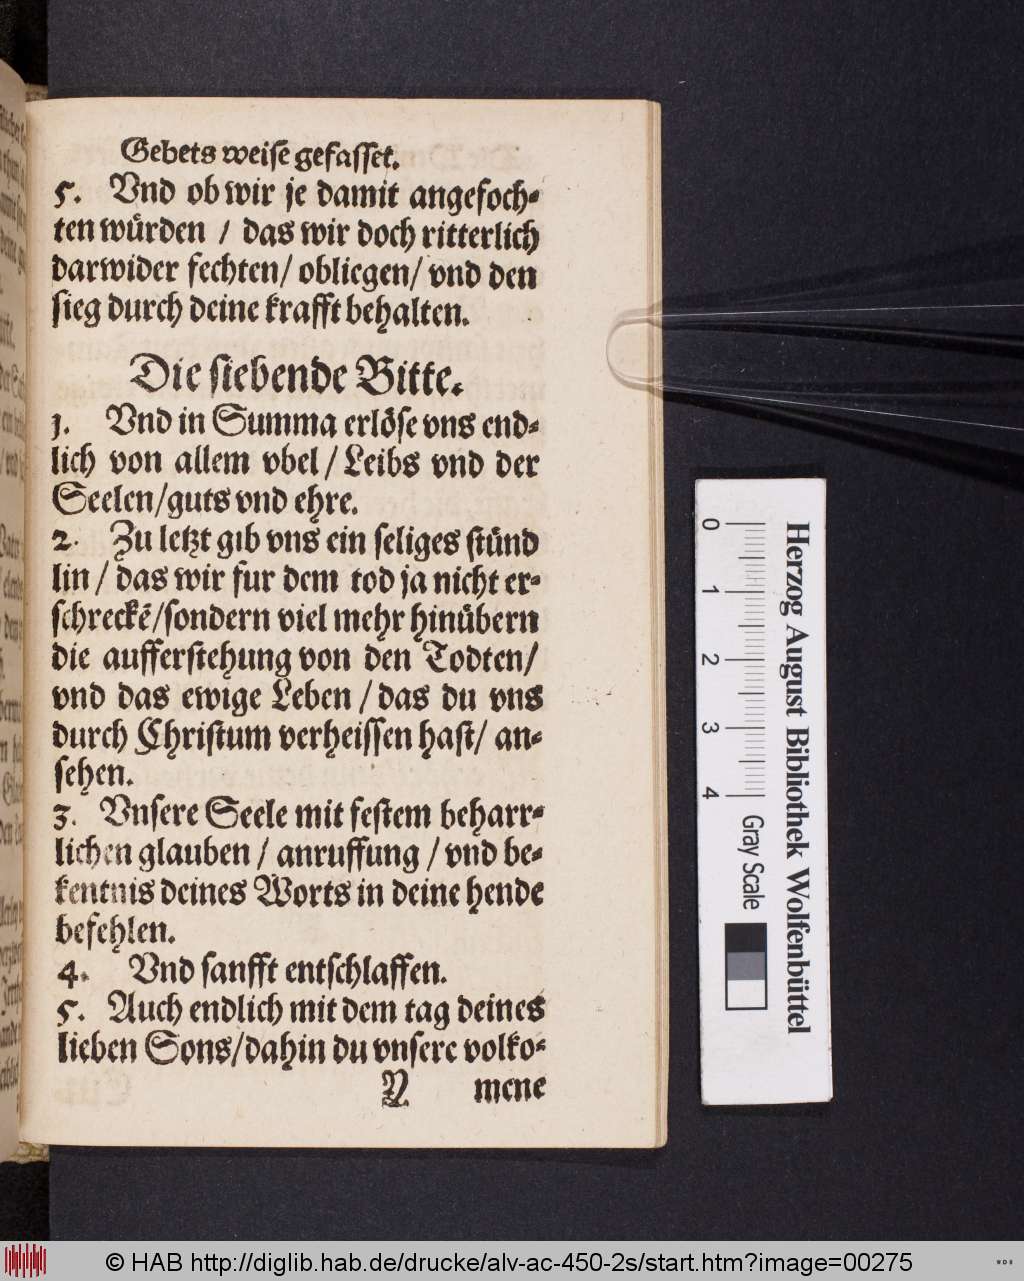 Gebets weise gefasset.
5. Vnd ob wir je damit angefoch-
ten würden / das wir doch ritterlich
darwider fechten/ obliegen/ vnd den
sieg durch deine krafft behalten.
Die siebende Bitte.
1. Vnd in Summa erlöse vns end-
lich von allem vbel / Leibs vnd der
Seelen/guts vnd ehre.
2. Zu letzt gib vns ein seliges stünd
lin / das wir fur dem tod ja nicht er-
schreckē/sondern viel mehr hinübern
die aufferstehung von den Todten/
vnd das ewige Leben / das du vns
durch Christum verheissen hast/ an-
sehen.
3. Vnsere Seele mit festem beharr-
lichen glauben / anruffung / vnd be-
kentnis deines Worts in deine hende
befehlen.
4. Vnd sanfft entschlaffen.
5. Auch endlich mit dem tag deines
lieben Sons/dahin du vnsere volko-
N mene
Herzog August Bibliothek Wolfenbüttel
0 1 2 3 4 Gray Scale
© HAB http://diglib.hab.de/drucke/alv-ac-450-2s/start.htm?image=00275